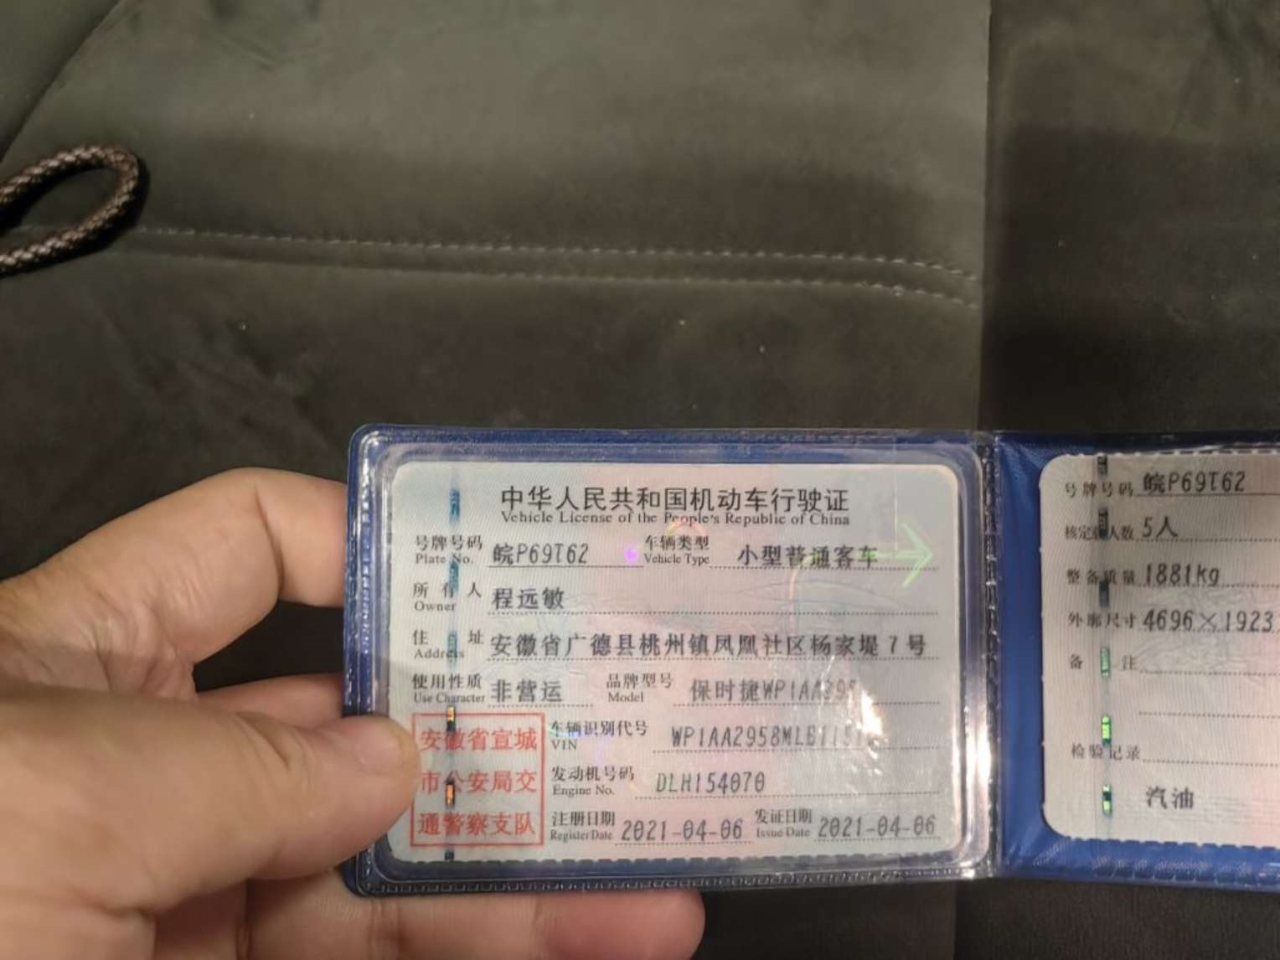 中华人民共和国机动车行驶证
Vehicle License of the People's Republic of China
号牌号码 皖P69T62 车辆类型 小型普通客车
Plate No. Vehicle Type
所有人 程远敏
Owner
住址 安徽省广德县桃州镇凤凰社区杨家堤7号
Address
使用性质 非营运 品牌型号 保时捷WP1AA295
Use Character Model
安徽省宣城
市公安局交
通警察支队
车辆识别代号
VIN
发动机号码 DLH154070
Engine No.
注册日期 2021-04-06 发证日期 2021-04-06
Register Date Issue Date
号牌号码 皖P69T62
核定载人数 5人
整备质量 1881kg
外廓尺寸 4696×1923
备注
检验记录
汽油